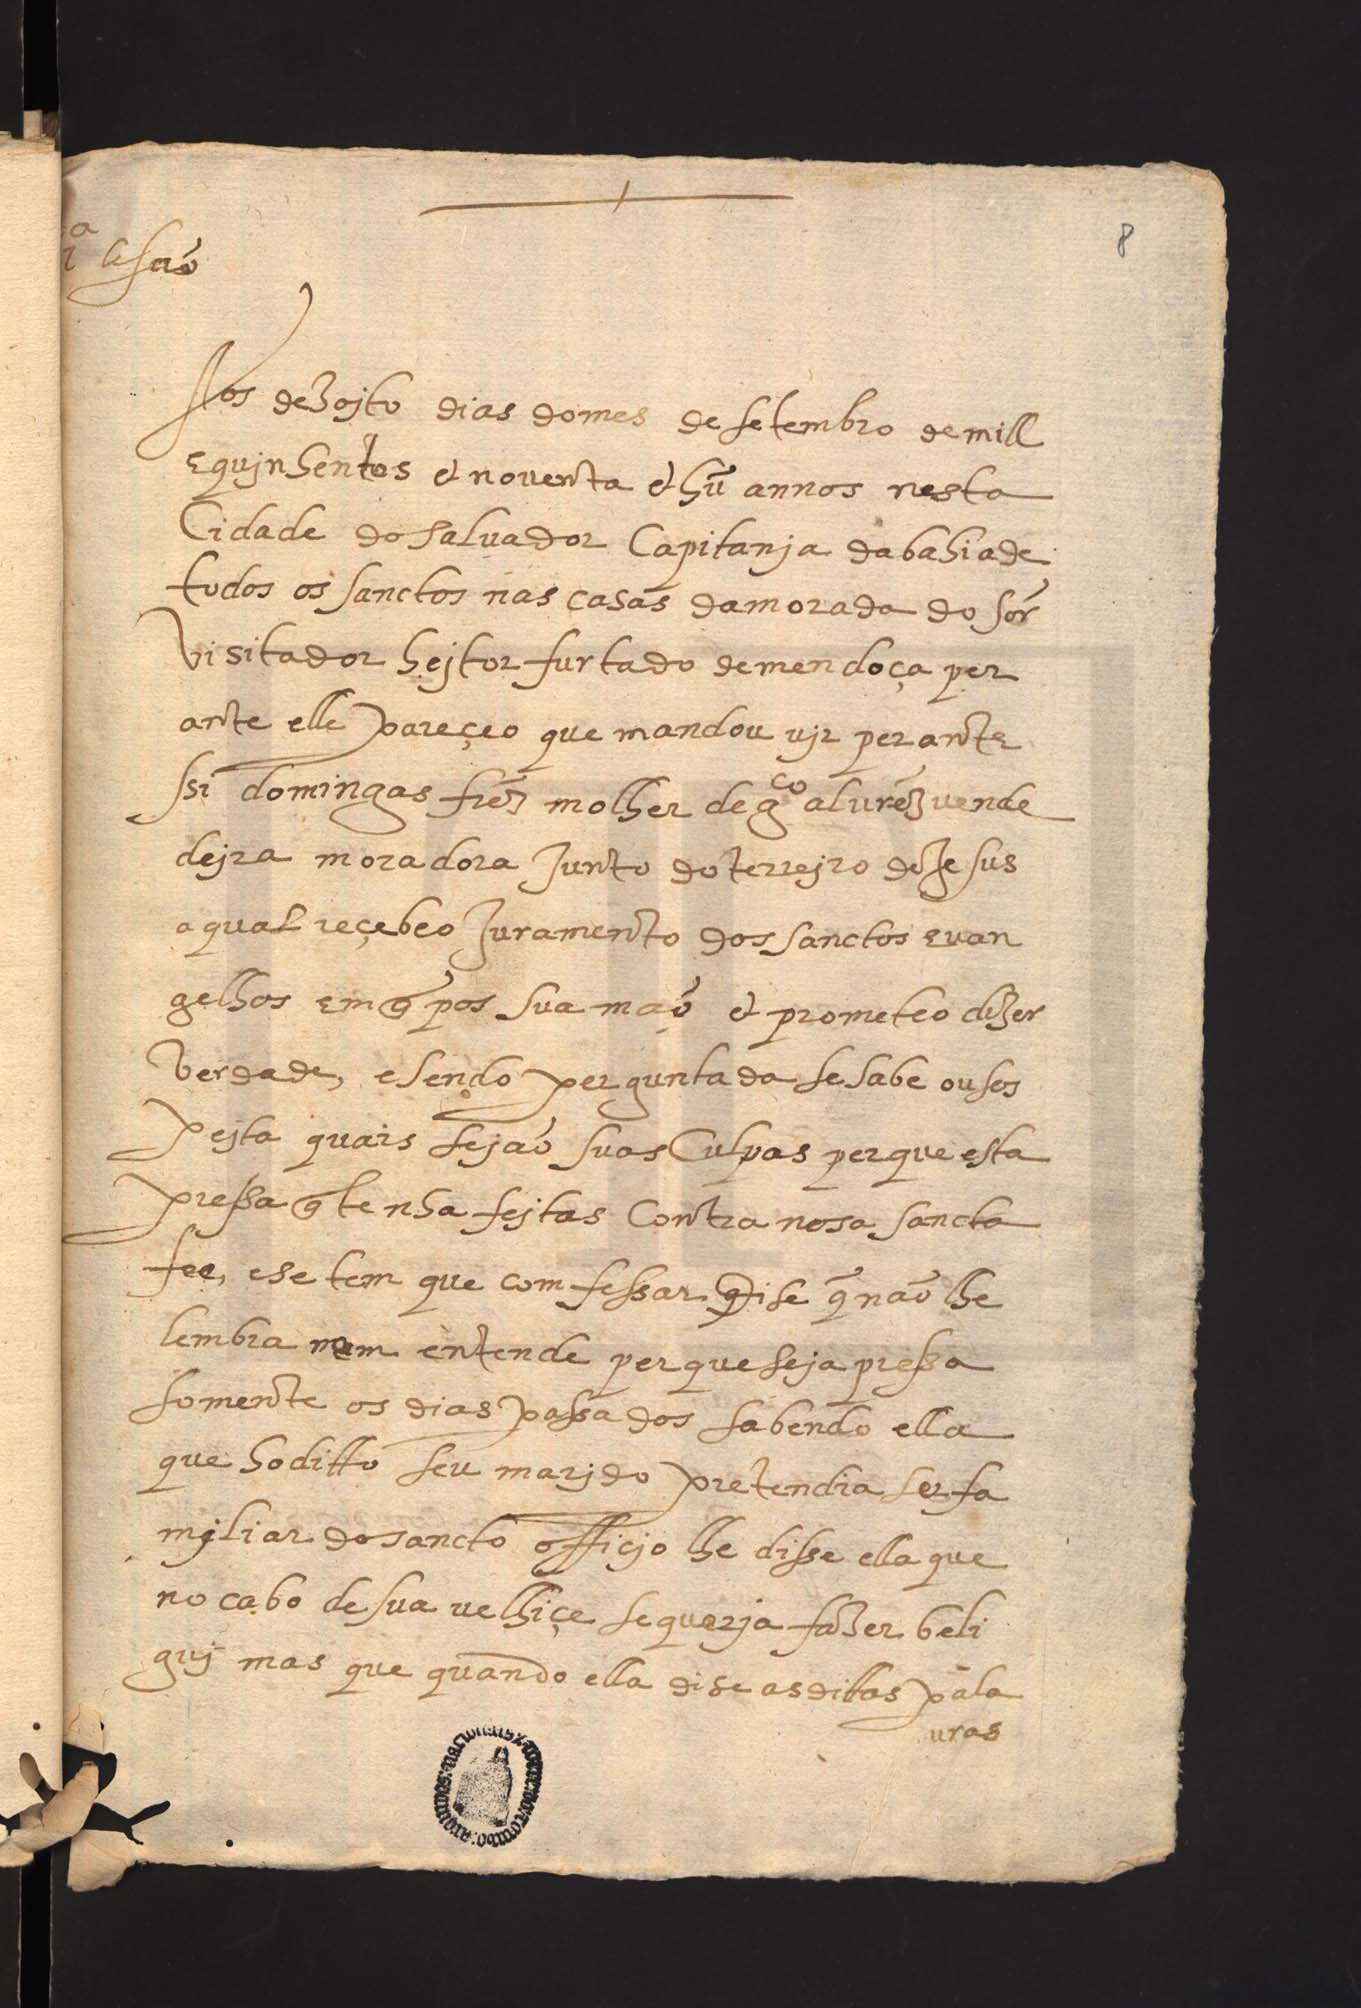 8
1ª sesão
Aos dezojto dias domes de setembro demill
equjnhentos e noventa e hũ annos nesta
Cidade do salvador Capitanja dabahia de
todos os sanctos nas casas damorada do sõr
visitador hejtor furtado demendoça per
ante elle pareçeo que mandou vjr perante
ssi domingas frz̃ molher de gco alvrez̃ vende
dejra moradora Junto do terrejro de Jesus
aqual reçebeo Juramento dos sanctos evan
gelhos em q̃ pos sua mão e prometeo dizer
verdade, e sendo perguntada se sabe ou sos
pejta quais sejão suas Culpas perque esta
pressa q̃ tenha fejtas Contra nosa sancta
fee, e se tem que comfessar dise q̃ não lhe
lembra nem entende perque seja pressa
somente os dias passados sabendo ella
que ho ditto seu marjdo pretendia ser fa
mjliar do sancto officjo lhe disse ella que
no cabo de sua velhiçe se querja fazer beli
guj mas que quando ella dise as dittas pala
uras